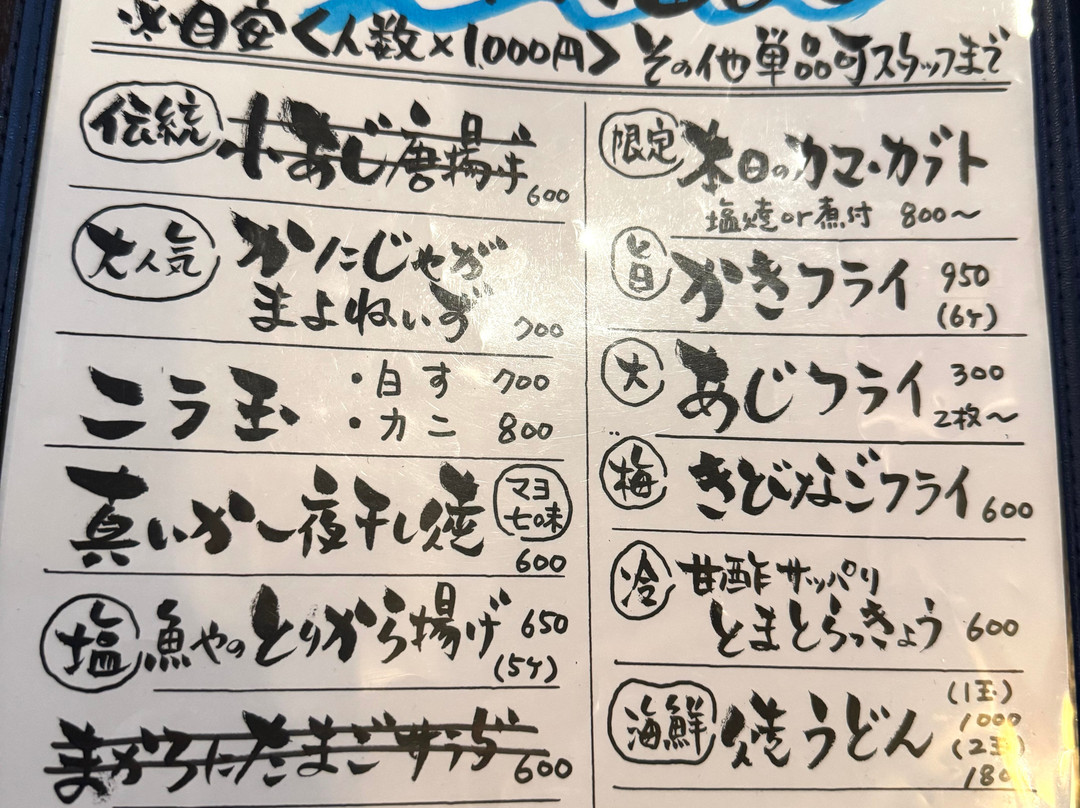 ※目安<人数×1,000円> その他単品可スタッフまで
伝統 小あじ唐揚げ
600
大人気 かにじゃが
まよねぃず 700
ニラ玉 ・白す 700
・カニ 800
真いか一夜干し焼 マヨ
七味
600
塩 魚やのとりから揚げ 650
(5ケ)
まかろにたまごサラダ 600
限定 本日のカマ・カブト
塩焼or煮付 800〜
旨 かきフライ 950
(6ケ)
大 あじフライ 300
2枚〜
梅 きびなごフライ 600
冷 甘酢サッパリ
とまとらっきょう 600
海鮮 焼うどん (1玉)
1000
(2玉)
180